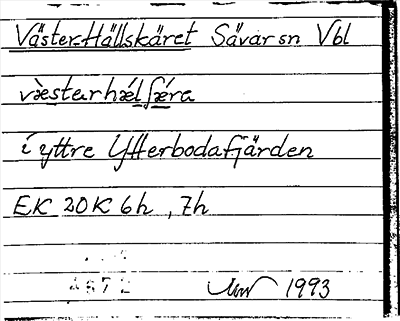 Väster-Hällskäret Sävar sn Vbl
væ̀starhæl ʃæra
i yttre Ytterbodafjärden
EK 20K 6h, 7h
4672
1993